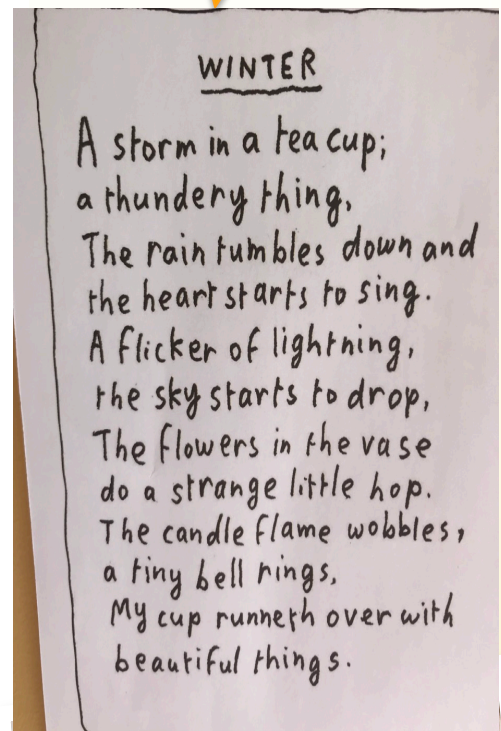 WINTER
A storm in a tea cup;
a thundery thing,
The rain tumbles down and
the heart starts to sing.
A flicker of lightning,
the sky starts to drop,
The flowers in the vase
do a strange little hop.
The candle flame wobbles,
a tiny bell rings,
My cup runneth over with
beautiful things.